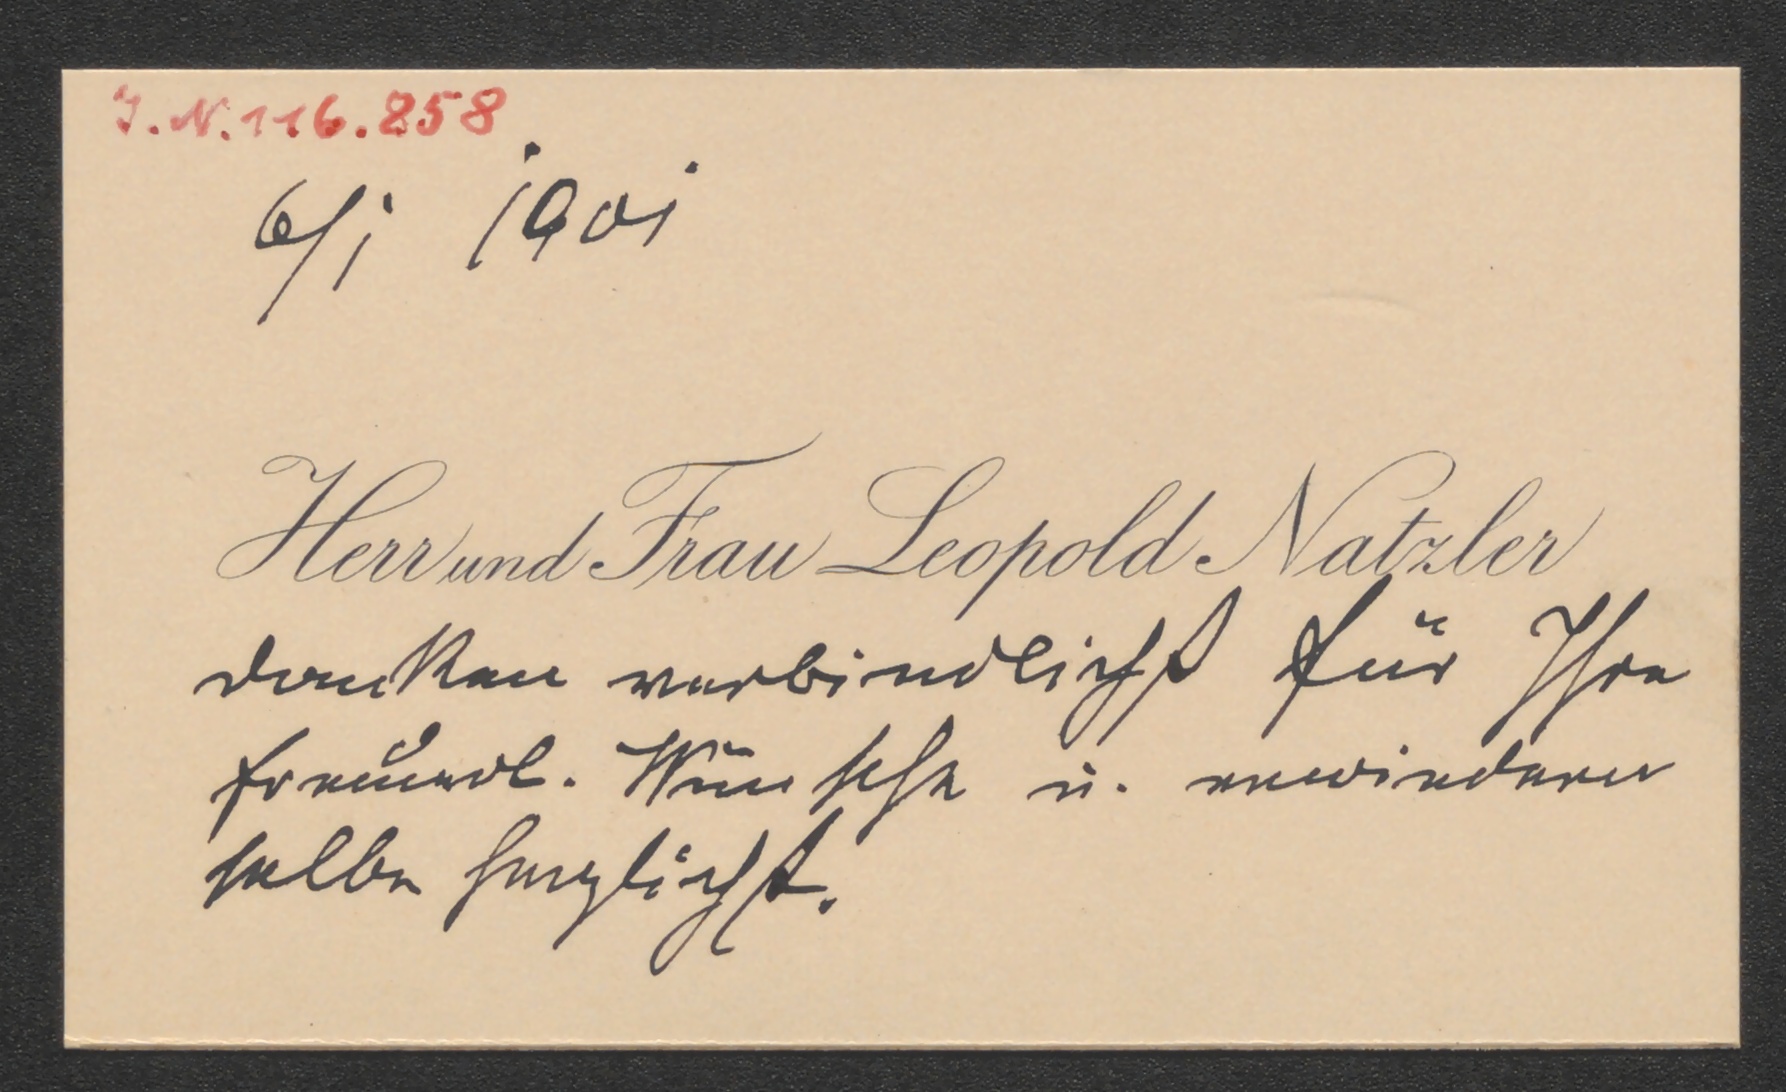 J.N.116.858
6/1 1901
Herr und Frau Leopold Natzler
danken verbindlichst für Ihre
freundl. Wünsche u. erwiedern
selbe herzlichst.